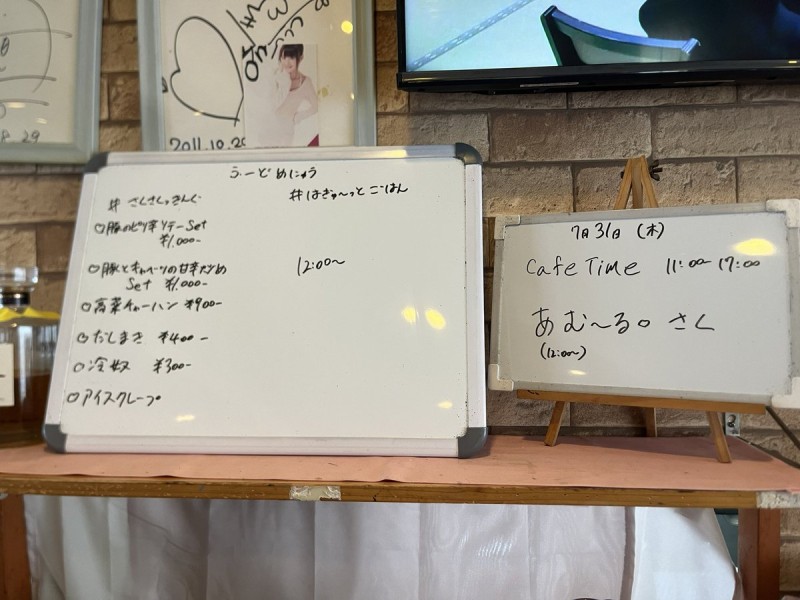 2011.10.29
8.29
ふーど めにゅう
# さくさくっきんぐ
# はぎゅ〜っとごはん
○豚のピリ辛ソテーSet
¥1,000-
○豚とキャベツの甘辛炒め
Set ¥1,000-
12:00〜
○高菜チャーハン ¥900-
○だしまき ¥400-
○冷奴 ¥300-
○アイスクレープ
7月31日 (木)
Cafe Time 11:00-17:00
あむ〜る。さく
(12:00〜)